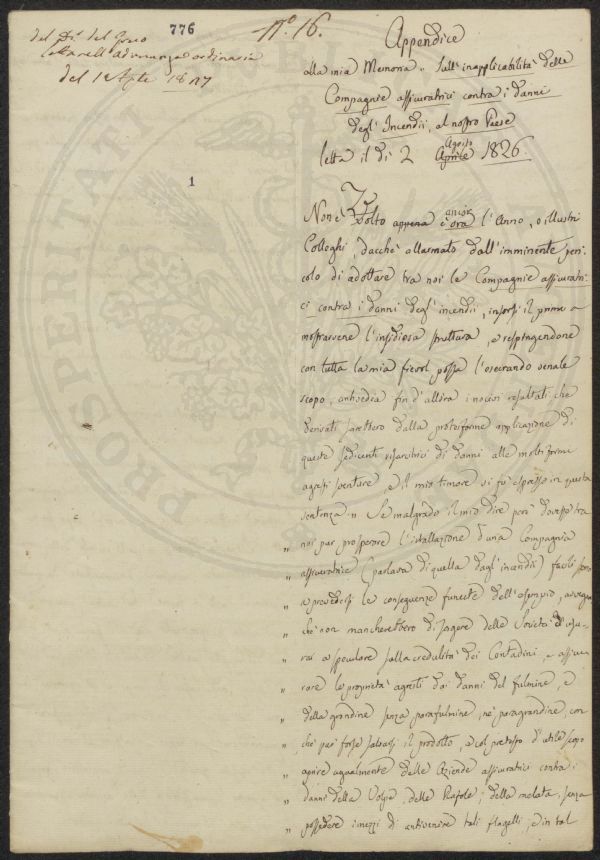 776
N.º 16.
del Sig.
adunanza ordinaria
del 1 Agto 1827
1
Appendice
alla mia Memoria „ Sull'inapplicabilità delle
Compagnie assicuratrici contra i danni
degl'Incendii, al nostro Paese
letta il dì 2 Agosto Aprile 1826.
Non è volto appena ancor ora l'Anno, o illustri
Colleghi, dacchè allarmato dall'imminente peri-
colo di adottare tra noi le Compagnie assicuratri-
ci contra i danni degl'incendii, insorsi il primo a
mostrarvene l'insidiosa struttura, e respingendone
con tutta la mia fievol possa l'esecrando venale
scopo, antivedia fin d'allora i nocivi resultati che
derivati sarebbero dalla proteiforme applicazione di
queste sedicenti risarcitrici di danni alle moltiformi
agresti sventure, e il mio timore si fu espresso in questa
sentenza „ Se malgrado il mio dire però dovesse tra
„ noi pur prosperare l'istallazione d'una Compagnia
„ assicuratrice (parlava di quella dagl'incendii) facili sono
„ a prevedersi le conseguenze funeste dell'esempio, avvegna
„ chè non mancherebbero di sorgere delle Società d'usu-
„ rai a speculare sulla credulità dei Contadini, e assicu-
„ rare le proprietà agresti dai danni del fulmine, e
„ della grandine senza parafulmine, nè paragrandine, con
„ che può forse salvarsi il prodotto, e col pretesto d'utile scopo
„ aprire ugualmente delle Aziende assicuratrici contra i
„ danni della Volpe, delle della melata, senza
„ possedere i mezzi di antivenire tali flagelli, e in tal
PROSPERITATI